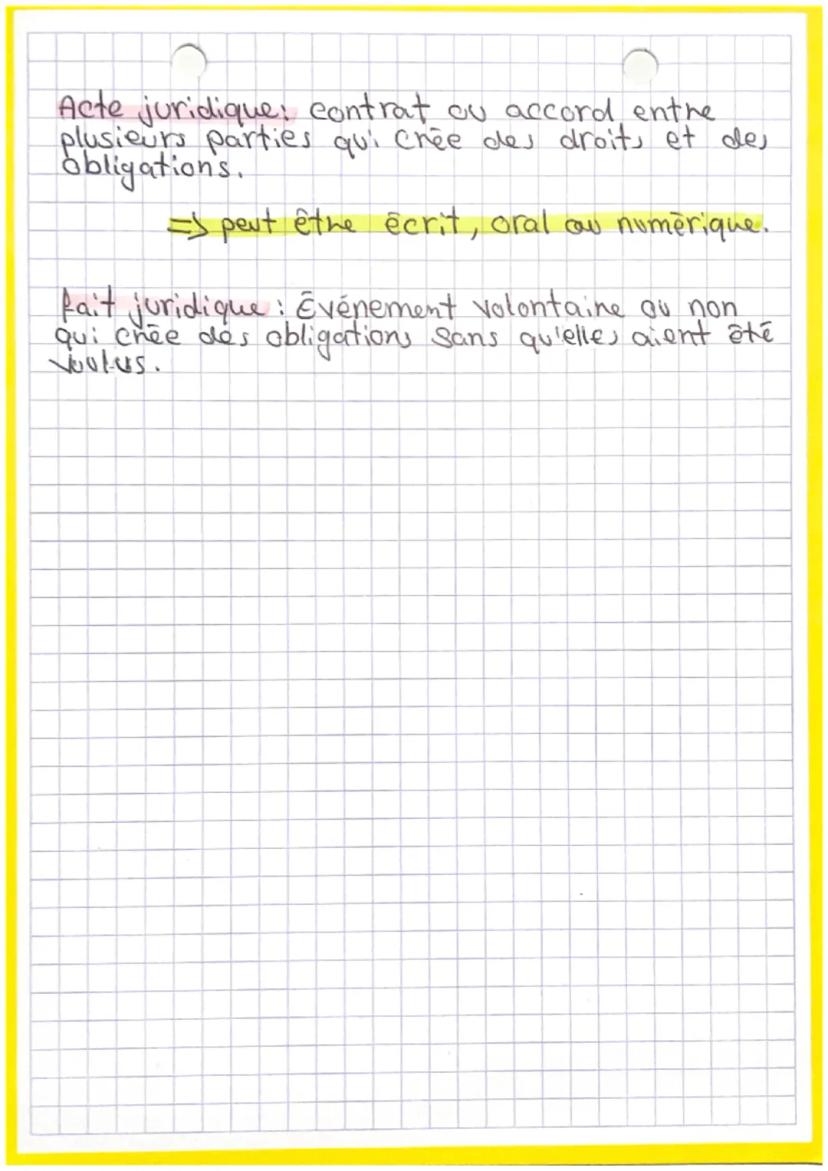 Acte juridique: contrat ou accord entre
plusieurs parties qui crée des droits et des
obligations.
=> peut être écrit, oral ou numérique.
fait juridique : Événement volontaire ou non
qui crée des obligations sans qu'elles aient été
voulus.